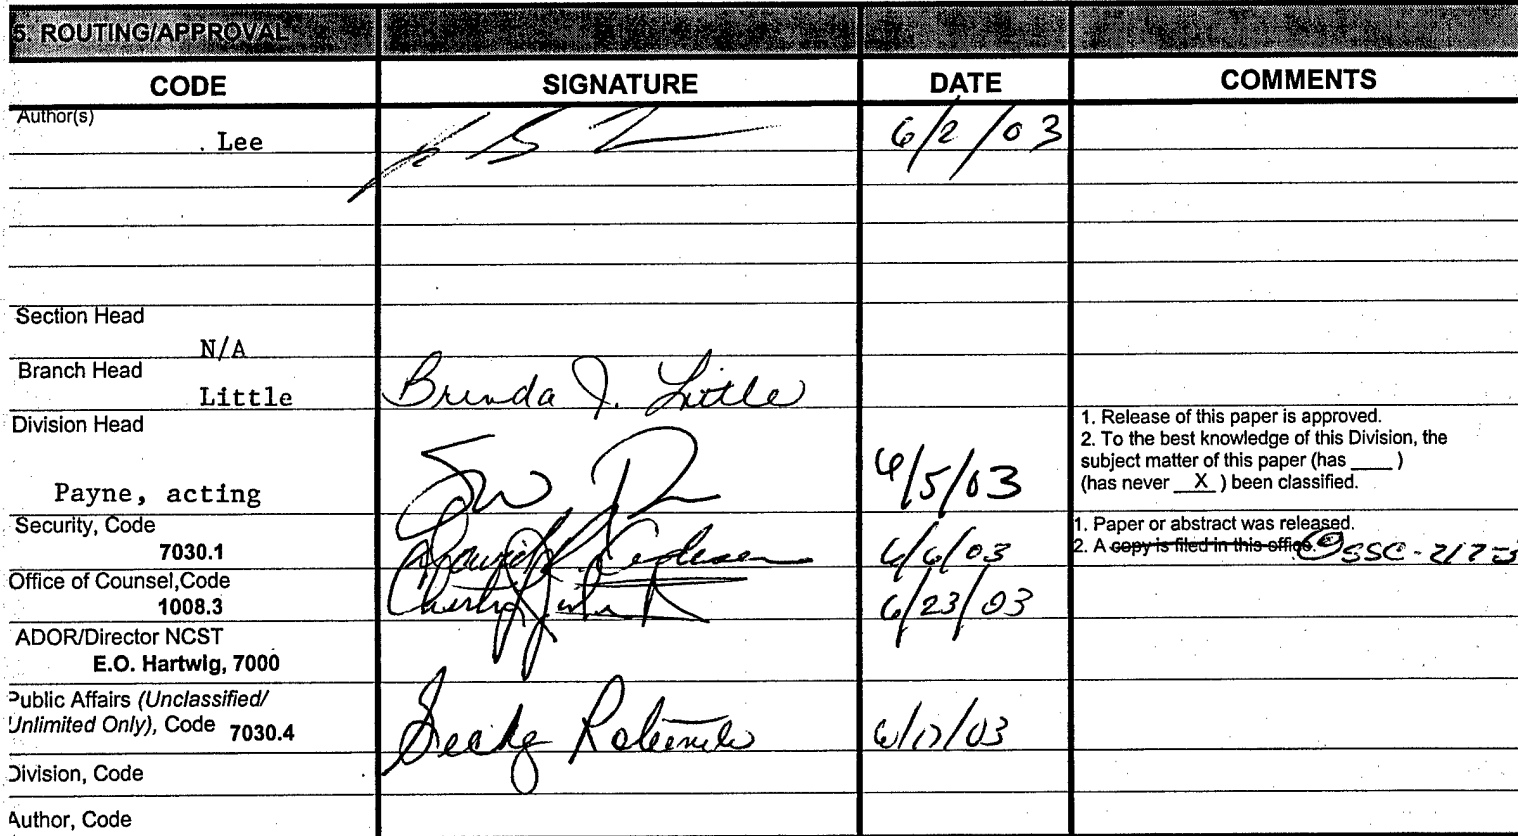 5. ROUTING/APPROVAL
CODE SIGNATURE DATE COMMENTS
Author(s)
. Lee 6/2/03
Section Head
N/A
Branch Head
Little Brenda J. Little
Division Head
Payne, acting 6/5/03
1. Release of this paper is approved.
2. To the best knowledge of this Division, the
subject matter of this paper (has ____ )
(has never __X__ ) been classified.
Security, Code
7030.1 6/6/03
1. Paper or abstract was released.
2. A copy is filed in this office. SSC-
Office of Counsel,Code
1008.3 6/23/03
ADOR/Director NCST
E.O. Hartwig, 7000
Public Affairs (Unclassified/
Unlimited Only), Code 7030.4
Division, Code
Author, Code